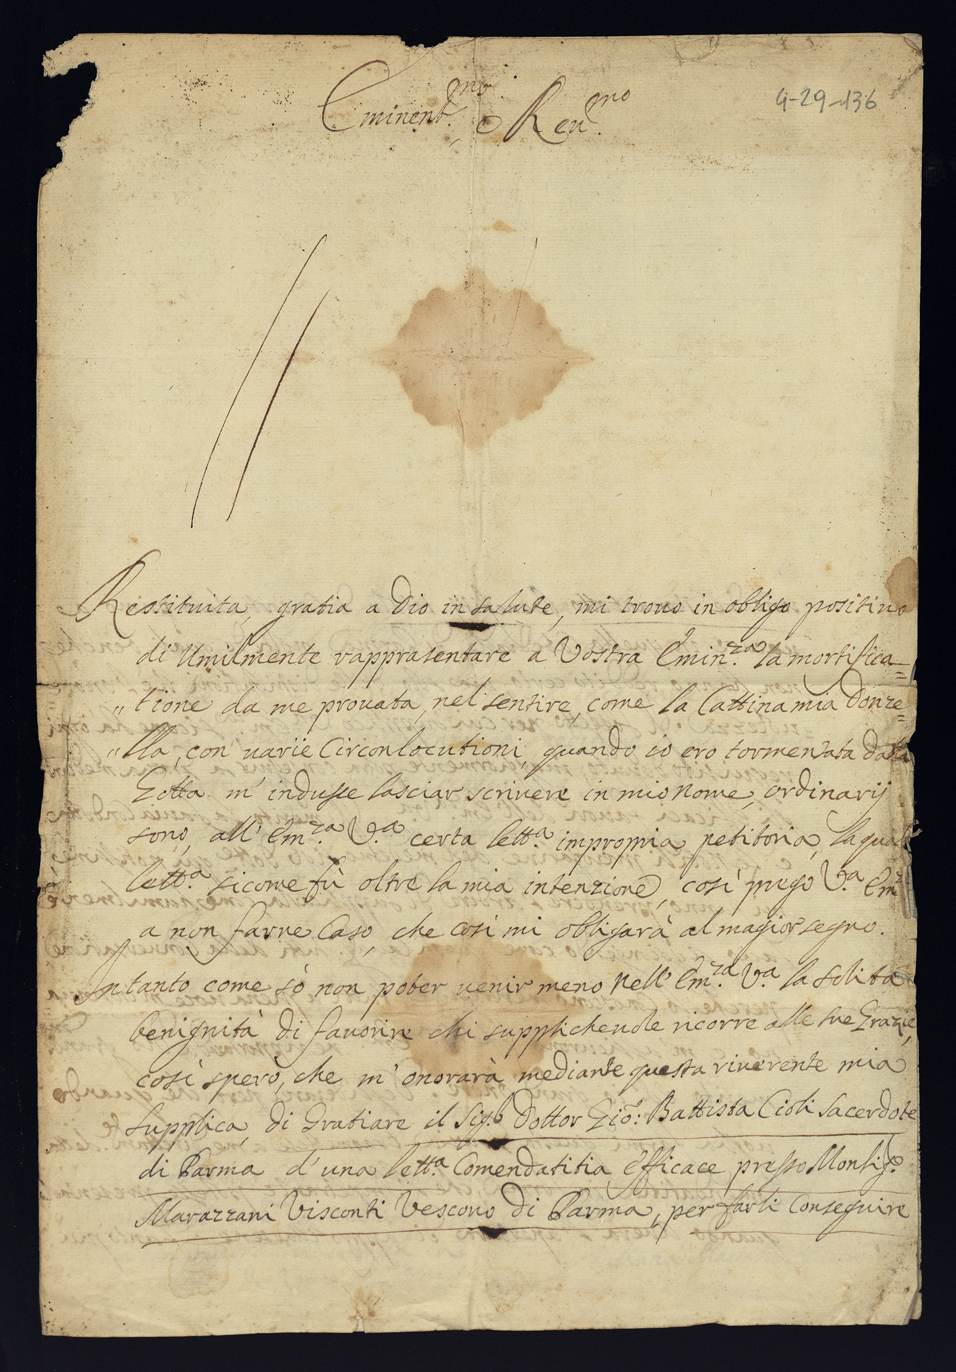 4-29-136
Eminent.mo e Reu.mo
Restituita, gratia a Dio in salute, mi trouo in obligo positiuo
di Umilmente rappresentare a Vostra Emin.za la mortifica=
"tione da me prouata, nel sentire, come la Cattina mia Donze=
"lla, con varie Circonlocutioni, quando io ero tormentata dalla
Gotta m' indusse lasciar scrivere in mio nome, ordinarij
sono, all' Em.za V.a certa lett.a impropria petitoria, la qual
lett.a sicome fù oltre la mia intenzione, così prego V.a Em.za
a non farne Caso, che così mi obligarà al magior segno.
Intanto come sò non poter venir meno nell' Em.za V.a la solita
benignità di favorire chi supplicheuole ricorre alle sue Grazie,
così sperò, che m' onorarà mediante questa riverente mia
supplica, di Gratiare il Sig.r Dottor Gio: Battista Cioli sacerdote
di Parma d' una lett.a Comendatitia Efficace presso Monsig.e
Marazzani Visconti Vescouo di Parma, per farli Conseguire